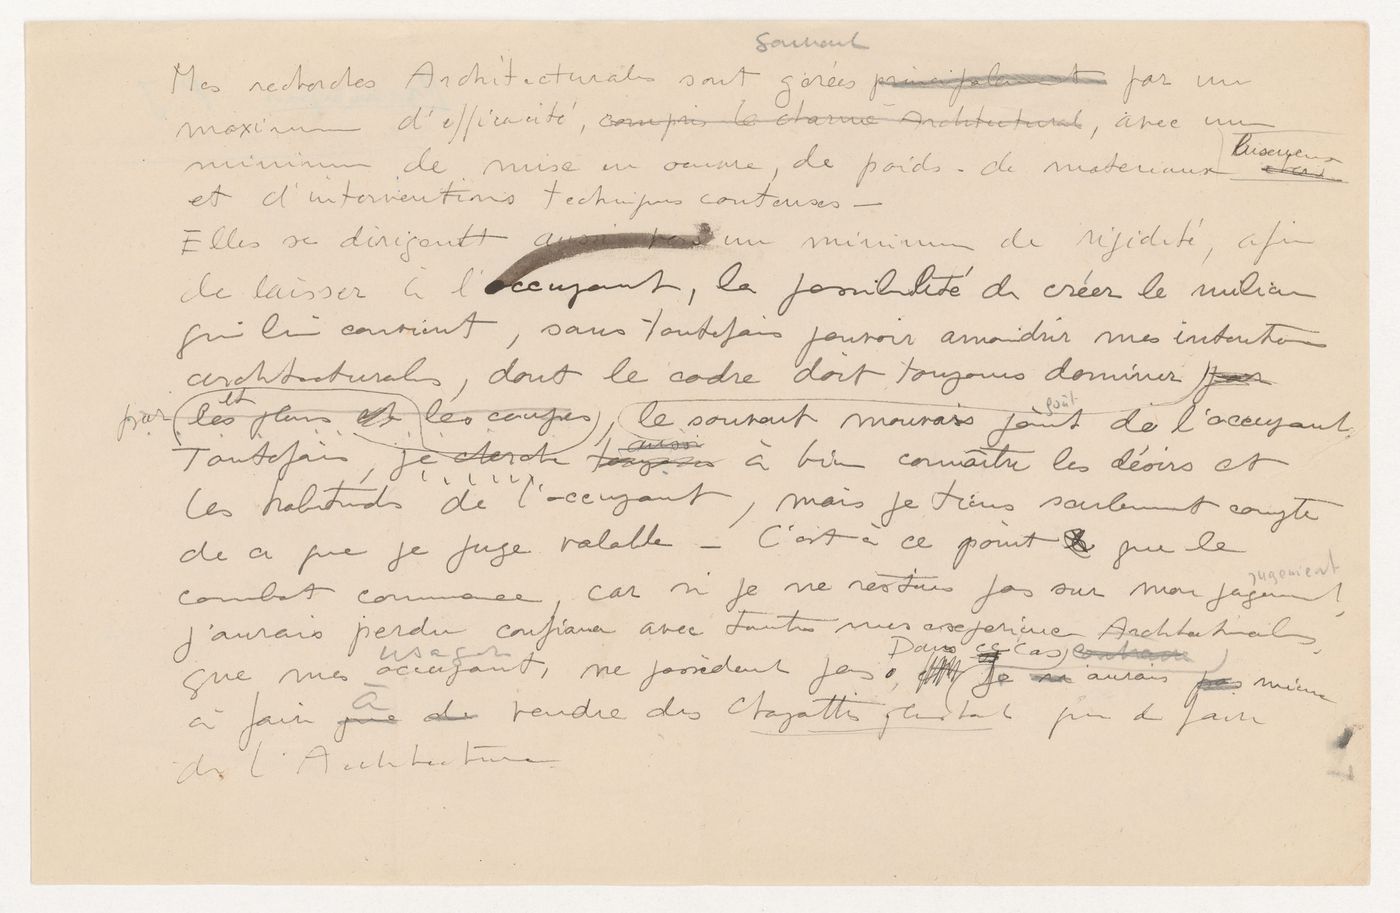 souvent
Mes recherches Architecturales sont gérées principalement par un
maximum d'efficacité, compris le charme Architectural, avec un
minimum de mise en oeuvre, de poids - de materiaux
et d'interventions techniques couteuses -
Elles se dirigent aussi vers un minimum de rigidité, afin
de laisser à l'occupant, la possibilité de créer le milieu
qui lui convient, sans toutefois pouvoir amoindrir mes intentions
architecturales, dont le cadre doit toujours dominer par
par les plans et les coupes, le souvent mauvais goût de l'occupant.
goût
aussi
Toutefois, je cherche toujours à bien connaître les désirs et
les habitudes de l'occupant, mais je tiens seulement compte
de ce que je juge valable - C'est à ce point que le
jugement
combat commence, car si je ne restais pas sur mon jugement,
j'aurais perdu confiance avec toutes mes experiences Architecturales,
usagers Dans ce cas,
que mes occupant, ne possèdent pas, je aurais pas mieux
à
à faire que de vendre des plutot que de faire
de l'Architecture